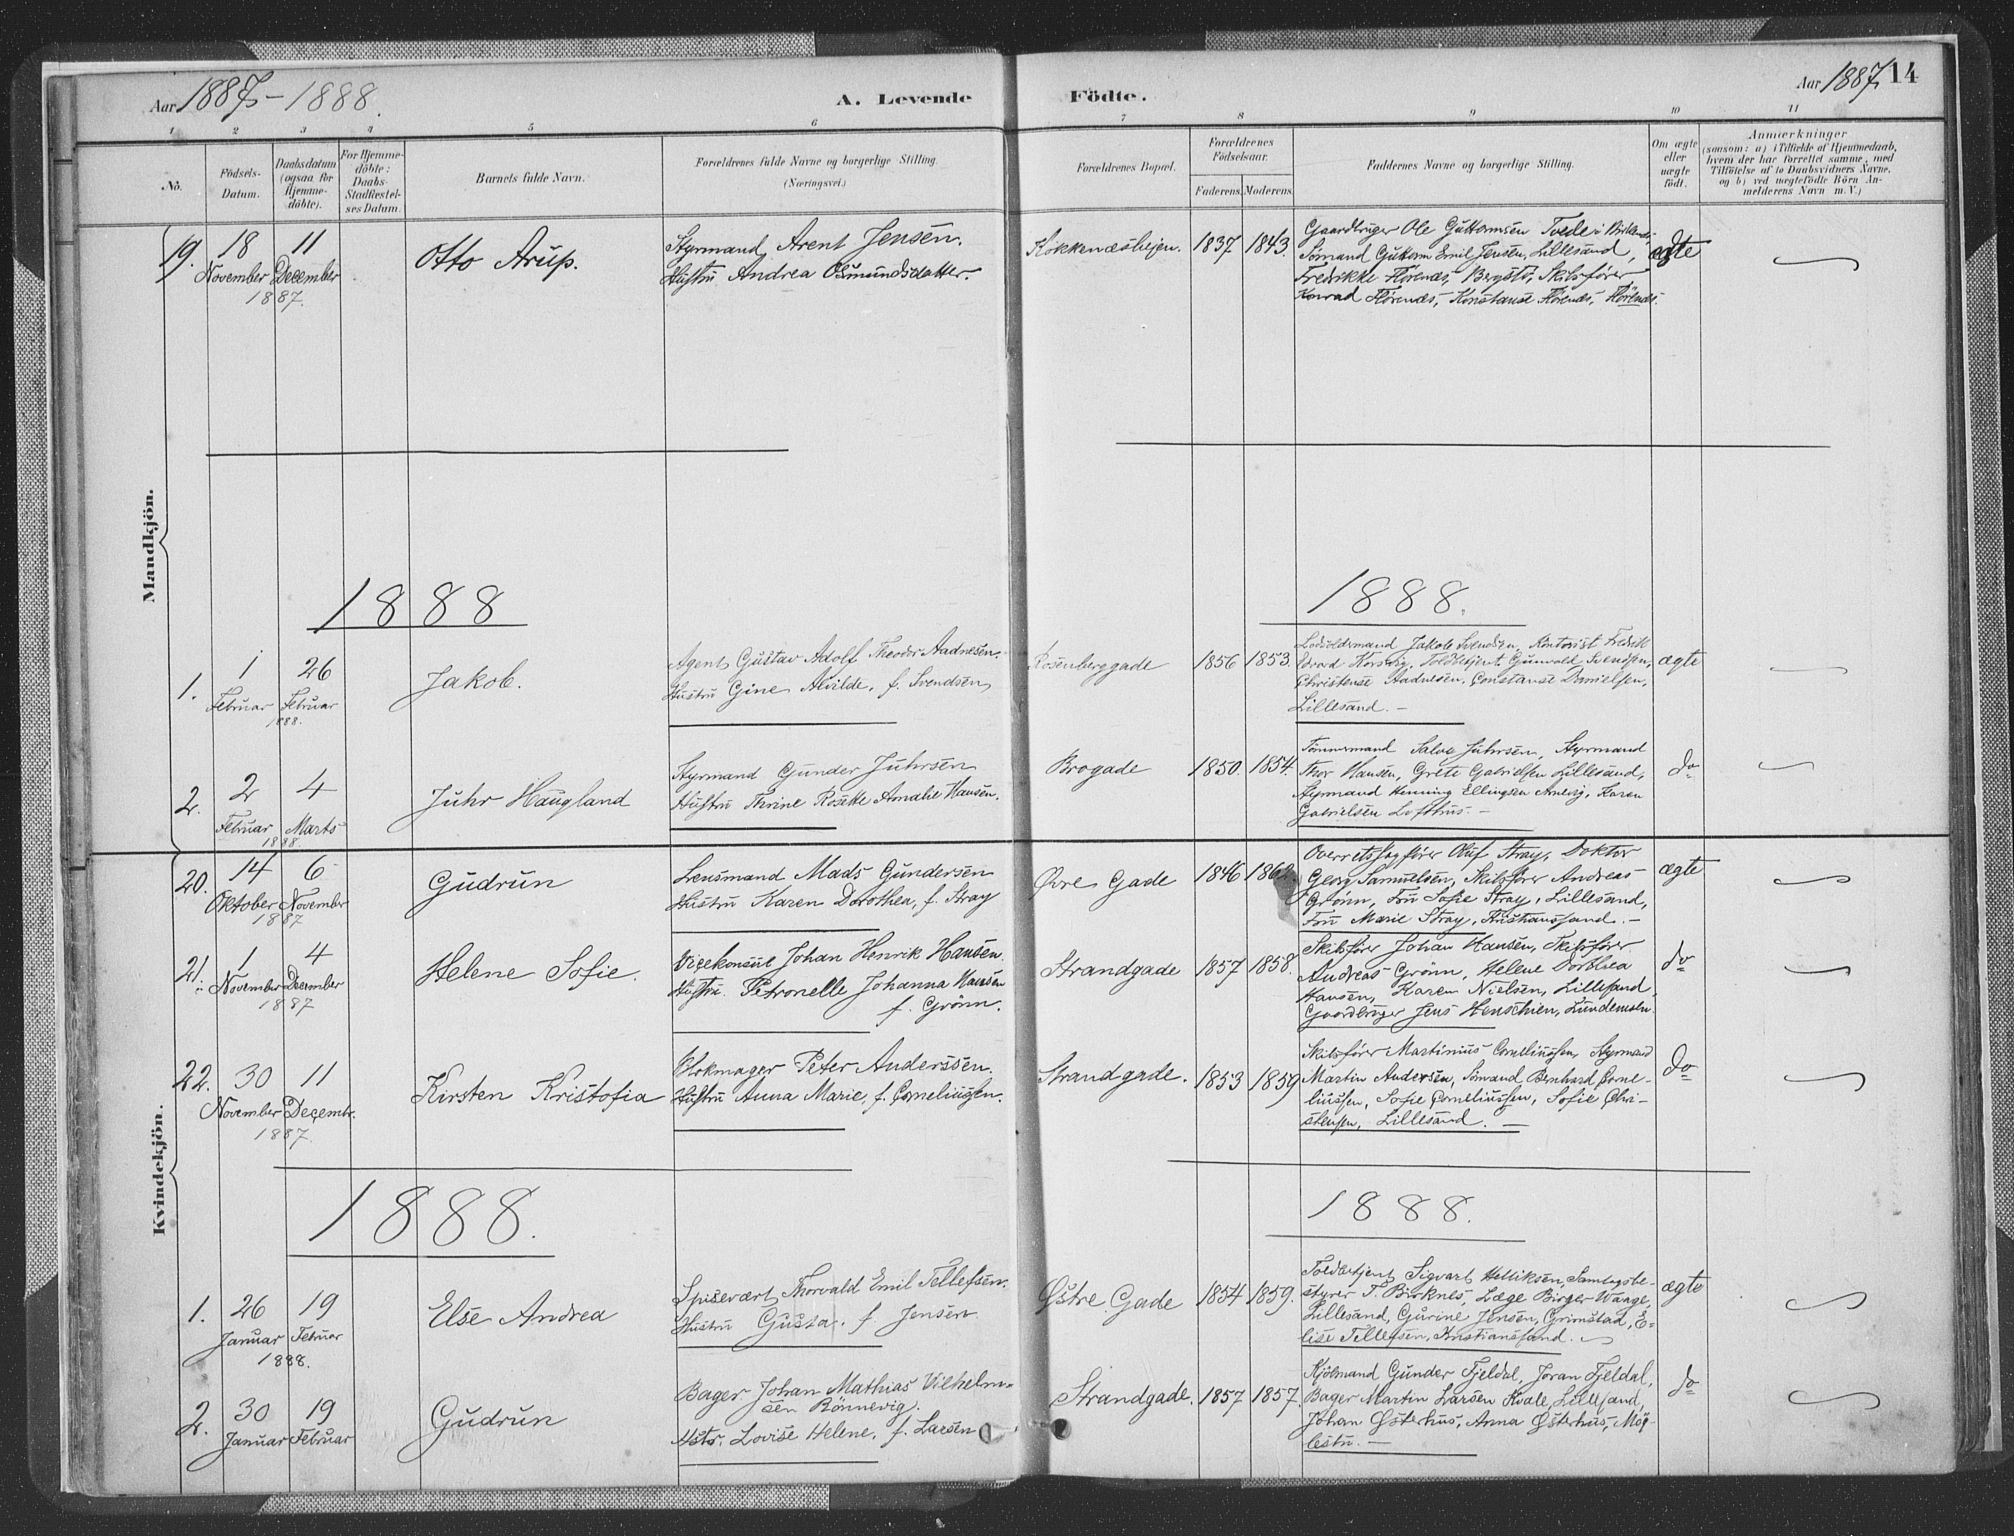 Aar 1887-1888.
A. Levende Födte.
Aar 1887. 14
1 2 3 4 5 6 7 8 9 10 11
No.
Födsels-Datum.
Daabsdatum (ogsaa for Hjemme-döbte).
For Hjemme-döbte: Daabs-Stadfæstel-ses Datum.
Barnets fulde Navn.
Forældrenes fulde Navne og borgerlige Stilling. (Næringsvei.)
Forældrenes Bopæl.
Forældrenes Födselsaar.
Faderens. Moderens.
Faddernes Navne og borgerlige Stilling.
Om ægte eller uægte födt.
Anmærkninger
(saasom: a) i Tilfælde af Hjemmedaab,
hvem der har forrettet samme, med
Tilföielse af to Daabsvidners Navne,
og b) ved uægtefödte Börn An-
melderens Navn m. V.)
Mandkjön.
19. 18 November 11 December 1887.
Otto Arup.
Styrmand Arent Jensen.
Hustru Andrea Osmundsdatter.
Kokkenæsheien. 1837 1843.
Gaardbruger Ole Guttormsen Tvede i Birkenæs,
Sömand Guttorm Emil Jensen, Lillesand,
Fredrikke Flörenæs, Bergstö, Skibsförer
Konrad Flörenæs, Konstanse Flörenæs, Flörenæs.
ægte
1888
1888.
1. 1 Februar 26 Februar 1888.
Jakob.
Agent Gustav Adolf Theodor Aadnesen.
Hustru Gine Alvilde, f. Svendsen
Rosenberggade 1856 1853.
Lodsoldermand Jakob Svendsen, Kontorist Fredrik
Edvard Korsvig, Toldbetjent Gunvald Svendsen,
Christense Aadnesen, Constanse Danielsen,
Lillesand. -
ægte
2. 2 Februar 4 Marts 1888.
Juhr Haugland
Styrmand Gunder Juhrsen
Hustru Thrine Rosette Amalie Hansen.
Brogade 1850. 1854.
Tömmermand Salve Juhrsen, Styrmand
Thor Hansen, Grete Gabrielsen Lillesand,
Styrmand Henning Ellingsen Arnevig, Karen
Gabrielsen Lofthus. -
do
Kvindekjön.
20. 14 Oktober 6 November 1887
Gudrun
Lensmand Mads Gundersen
Hustru Karen Dorothea, f. Stray
Øvre Gade 1846
Overretssagförer Oluf Stray, Doktor
Georg Samuelsen, Skibsförer Andreas
Grönn, Fru Sofie Stray, Lillesand,
Fru Marie Stray, Kristianssand. -
ægte
21. 1 November 4 December 1887
Helene Sofie.
Vicekonsul Johan Henrik Hansen.
Hustru Petronelle Johanna Hansen
f. Grönn.
Strandgade 1857 1858.
Skibsförer Johan Hansen, Skibsförer
Andreas Grönn, Helene Dorthea
Hansen, Karen Nielsen, Lillesand,
Gaardbruger Jens Henschien, Lundemoen.
do
22. 30 November 11 Decembr. 1887.
Kirsten Kristofia
Urkmager Peter Anderssen.
Hustru Anna Marie, f. Corneliussen.
Strandgade. 1853 1859
Skibsförer Martinius Corneliussen, Styrmand
Martin Andersen, Sömand Bernhard Corne-
liussen, Sofie Corneliussen, Sofie Chri-
stensen, Lillesand. -
do
1888.
1888.
1. 26 Januar 19 Februar 1888.
Else Andrea
Spisevært Thorvald Emil Tellefsen.
Hustru Gusta. f. Jensen
Østre Gade 1854 1859.
Toldbetjent Sigvart Helliksen, Samlagsbe-
styrer T. Birknes, Læge Birger Waage,
Lillesand, Gurine Jensen, Grimstad, E-
lise Tellefsen, Kristianssand.
ægte
2. 30 Januar 19 Februar
Gudrun
Bager Johan Mathias Vilhelm-
sen Rönnevig.
Hstr. Lovise Helene, f. Larsen
Strandgade. 1857 1857.
Kjöbmand Gunder Fjeldal, Joran Fjeldal,
Bager Martin Larsen Kvale, Lillesand,
Johan Østerhus, Anna Østerhus, Mög-
lestu. -
do